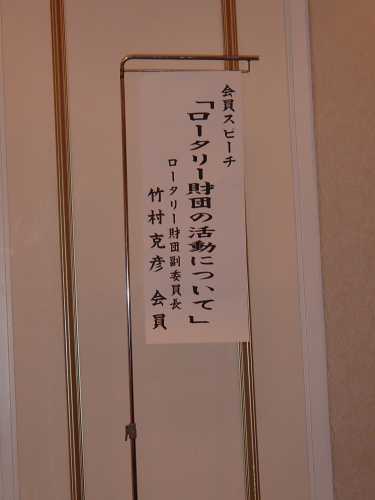 会員スピーチ
「ロータリー財団の活動について」
ロータリー財団副委員長
竹村克彦 会員